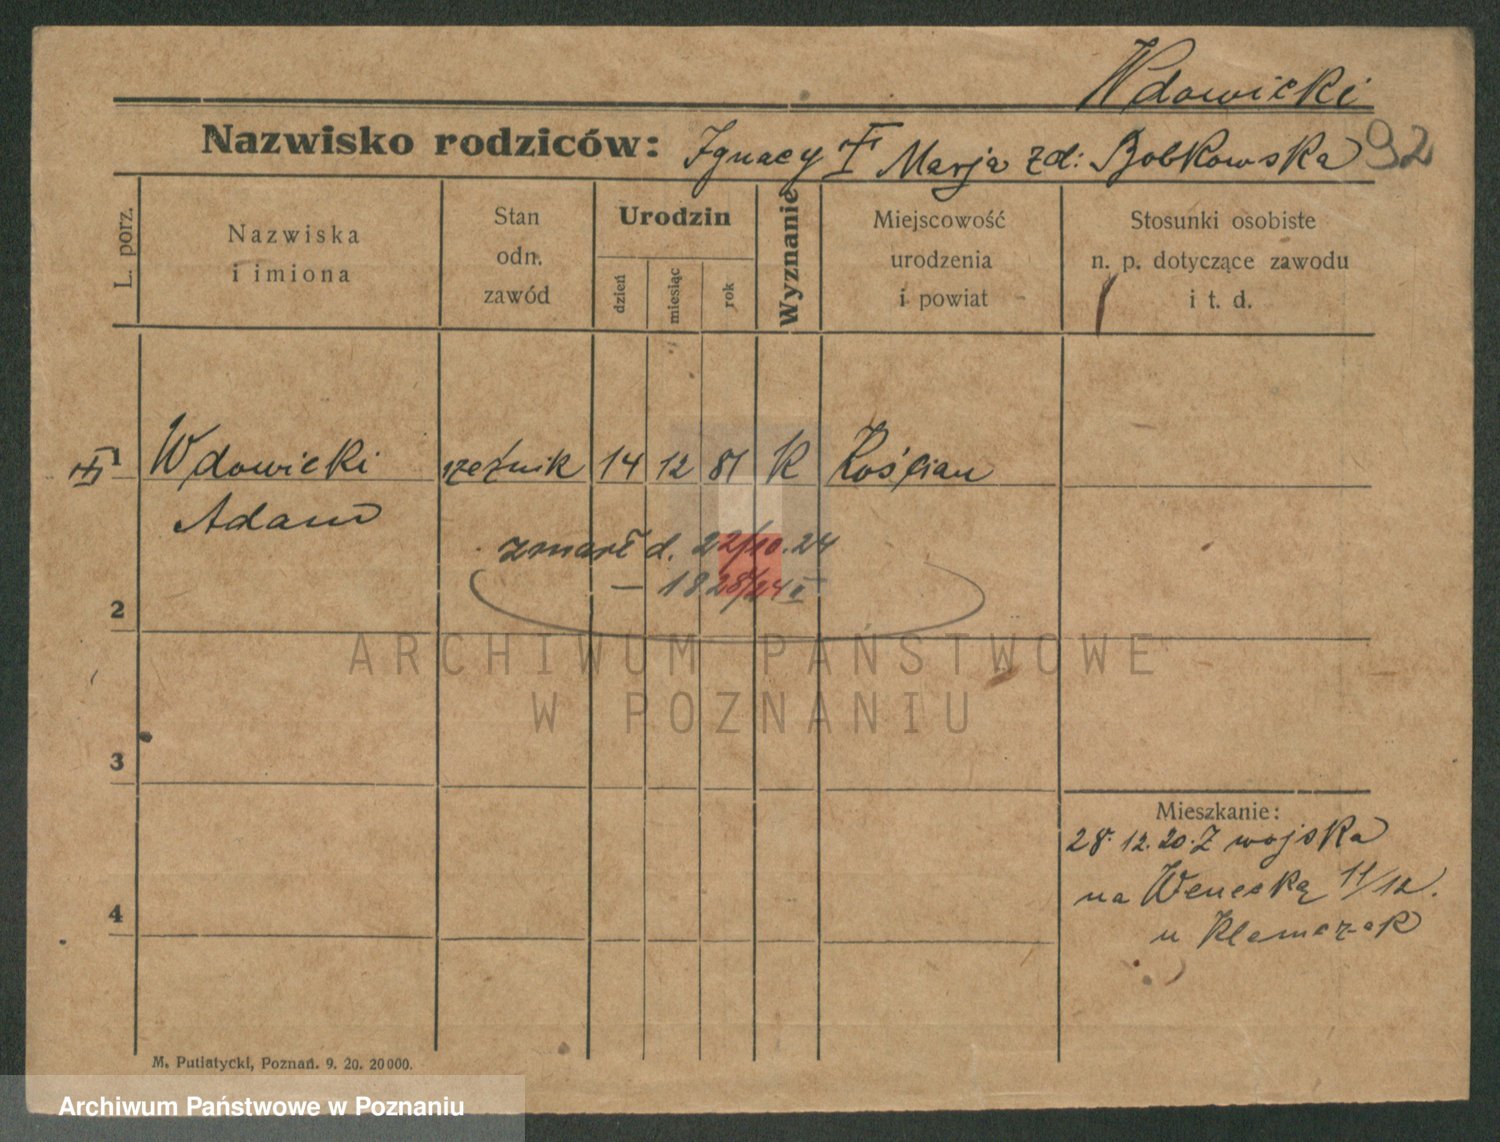 Wdowicki
Nazwisko rodziców: Ignacy Marja zd: Bobkowska 92
L. porz.
Nazwiska
i imiona
Stan
odn.
zawód
Urodzin
dzień
miesiąc
rok
Wyznanie
Miejscowość
urodzenia
i powiat
Stosunki osobiste
n. p. dotyczące zawodu
i t. d.
1 Wdowicki rzeźnik 14 12 81 K Kościan
Adam
zmarł d. 22/10.24
— 1828/24
2
ARCHIWUM PAŃSTWOWE
W POZNANIU
3
Mieszkanie:
28.12.20. Z wojska
na 11/12.
u Klamczak
4
M. Putiatycki, Poznań. 9. 20. 20000.
Archiwum Państwowe w Poznaniu